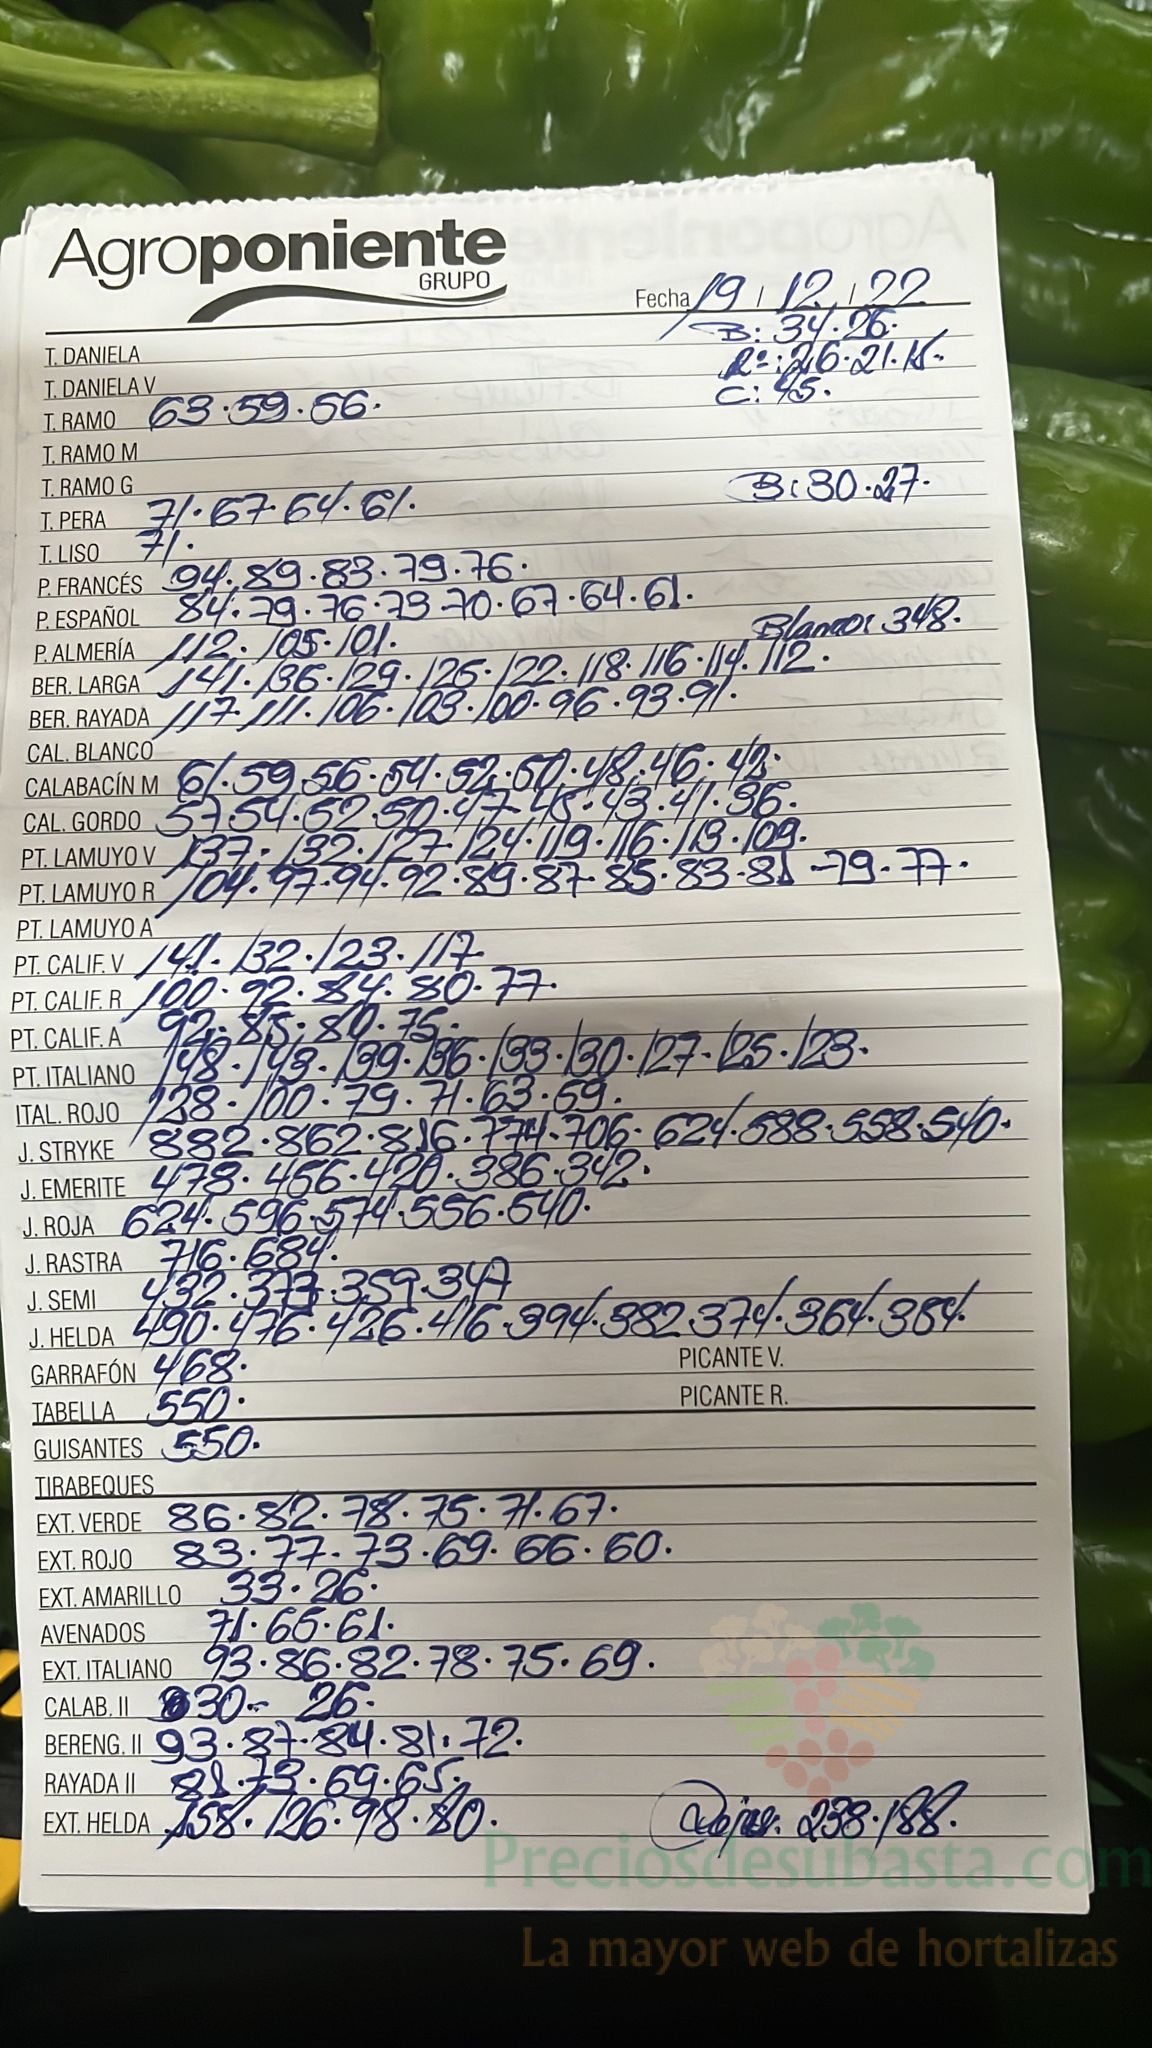 Agroponiente
GRUPO
Fecha 19 / 12 / 22
B: 34.26.
T. DANELA
R=: 26.21.15.
T. DANIELA V
C: 45.
T. RAMO 63.59.56.
T. RAMO M
T. RAMO G
B: 30.27.
T. PERA 71.67.64.61.
T. LISO 71.
P. FRANCÉS 94.89.83.79.76.
P. ESPAÑOL 84.79.76.73.70.67.64.61.
P. ALMERÍA 112.105.101. Blanco: 348.
BER. LARGA 141.136.129.125.122.118.116.114.112.
BER. RAYADA 117.111.106.103.100.96.93.91.
CAL. BLANCO
CALABACÍN M 61.59.56.54.52.50.48.46.42.
CAL. GORDO 57.54.52.50.47.45.43.41.36.
PT. LAMUYO V 137.132.127.124.119.116.113.109.
PT. LAMUYO R 104.97.94.92.89.87.85.83.81.79.77.
PT. LAMUYO A
PT. CALIF. V 141.132.123.117.
PT. CALIF. R 100.92.84.80.77.
PT. CALIF. A 92.85.80.75.
PT. ITALIANO 148.143.139.136.133.130.127.125.123.
ITAL. ROJO 128.100.79.71.63.59.
J. STRYKE 882.862.816.774.706.624.588.558.540.
J. EMERITE 478.456.420.386.342.
J. ROJA 624.596.574.556.540.
J. RASTRA 716.684.
J. SEMI 432.373.359.347
J. HELDA 490.476.426.416.394.382.374.364.384.
GARRAFÓN 468. PICANTE V.
TABELLA 550. PICANTE R.
GUISANTES 550.
TIRABEQUES
EXT. VERDE 86.82.78.75.71.67.
EXT. ROJO 83.77.73.69.66.60.
EXT. AMARILLO 33.26.
AVENADOS 71.65.61.
EXT. ITALIANO 93.86.82.78.75.69.
CALAB. II 30. 26.
BERENG. II 93.87.84.81.72.
RAYADA II 81.73.69.65.
EXT. HELDA 158.126.98.80. 238.188.
Preciosdesubasta.com
La mayor web de hortalizas